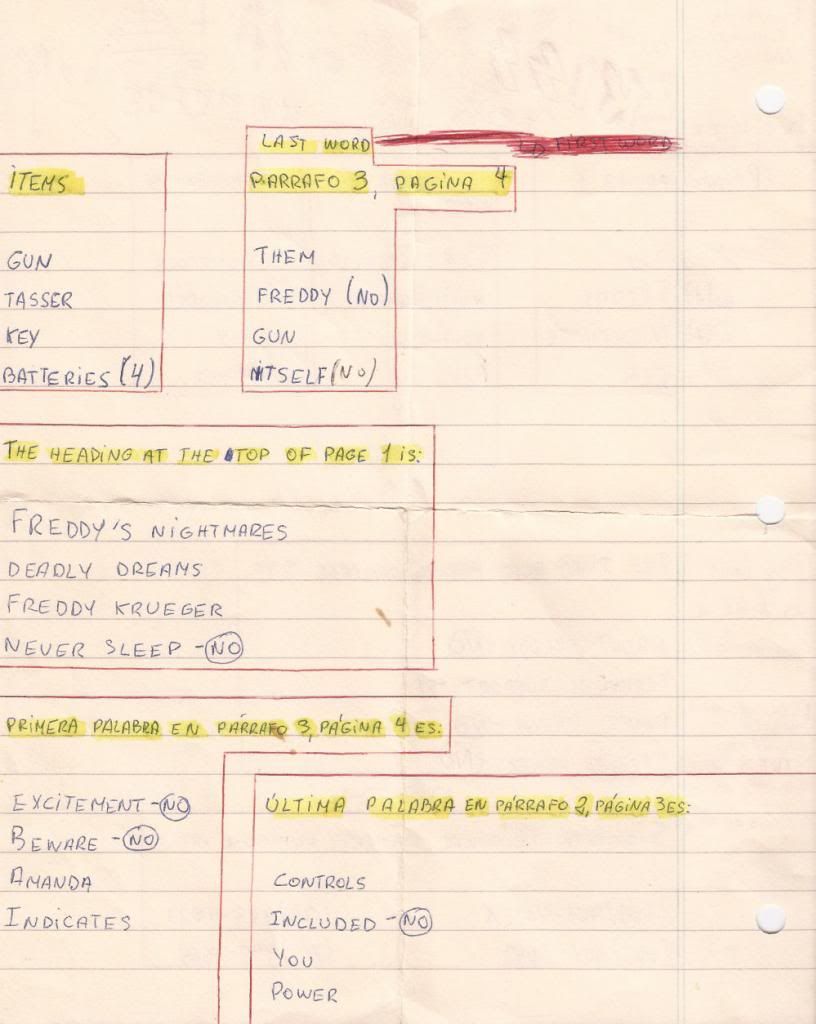 ITEMS
GUN
TASSER
KEY
BATTERIES (4)
LAST WORD
FIRST WORD
PARRAFO 3, PAGINA 4
THEM
FREDDY (NO)
GUN
ITSELF (NO)
THE HEADING AT THE TOP OF PAGE 1 iS:
FREDDY'S NIGHTMARES
DEADLY DREAMS
FREDDY KRUEGER
NEVER SLEEP - NO
PRIMERA PALABRA EN PÁRRAFO 3, PÁGINA 4 ES:
EXCITEMENT - NO
BEWARE - NO
AMANDA
INDICATES
ÚLTIMA PALABRA EN PÁRRAFO 2, PÁGINA 3 ES:
CONTROLS
INCLUDED - NO
YOU
POWER